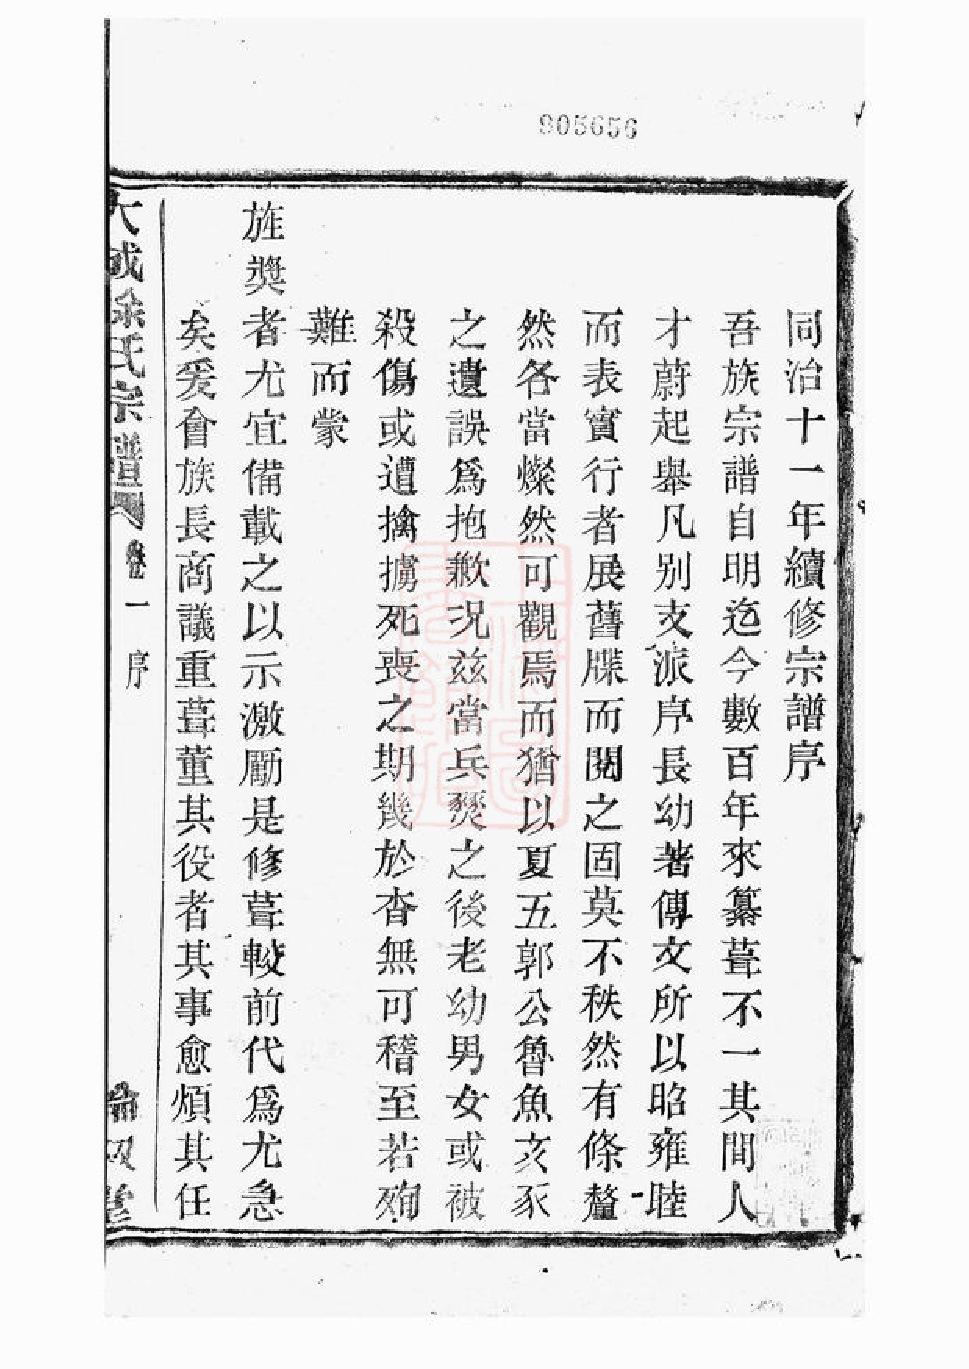 905656
同治十一年續修宗譜序
吾族宗譜自明迄今數百年來纂葺不一其間人
才蔚起舉凡別支派序長幼著傳文所以昭雍睦
而表實行者展舊牒而閱之固莫不秩然有條釐
然各當燦然可觀焉而猶以夏五郭公魯魚亥豕
之遺誤爲抱歉況兹當兵燹之後老幼男女或被
殺傷或遭擒擄死喪之期幾於杳無可稽至若殉
難而蒙
旌奬者尤宜備載之以示激勵是修葺較前代爲尤急
矣爰會族長商議重葺董其役者其事愈煩其任
大成徐氏宗譜
卷一
序